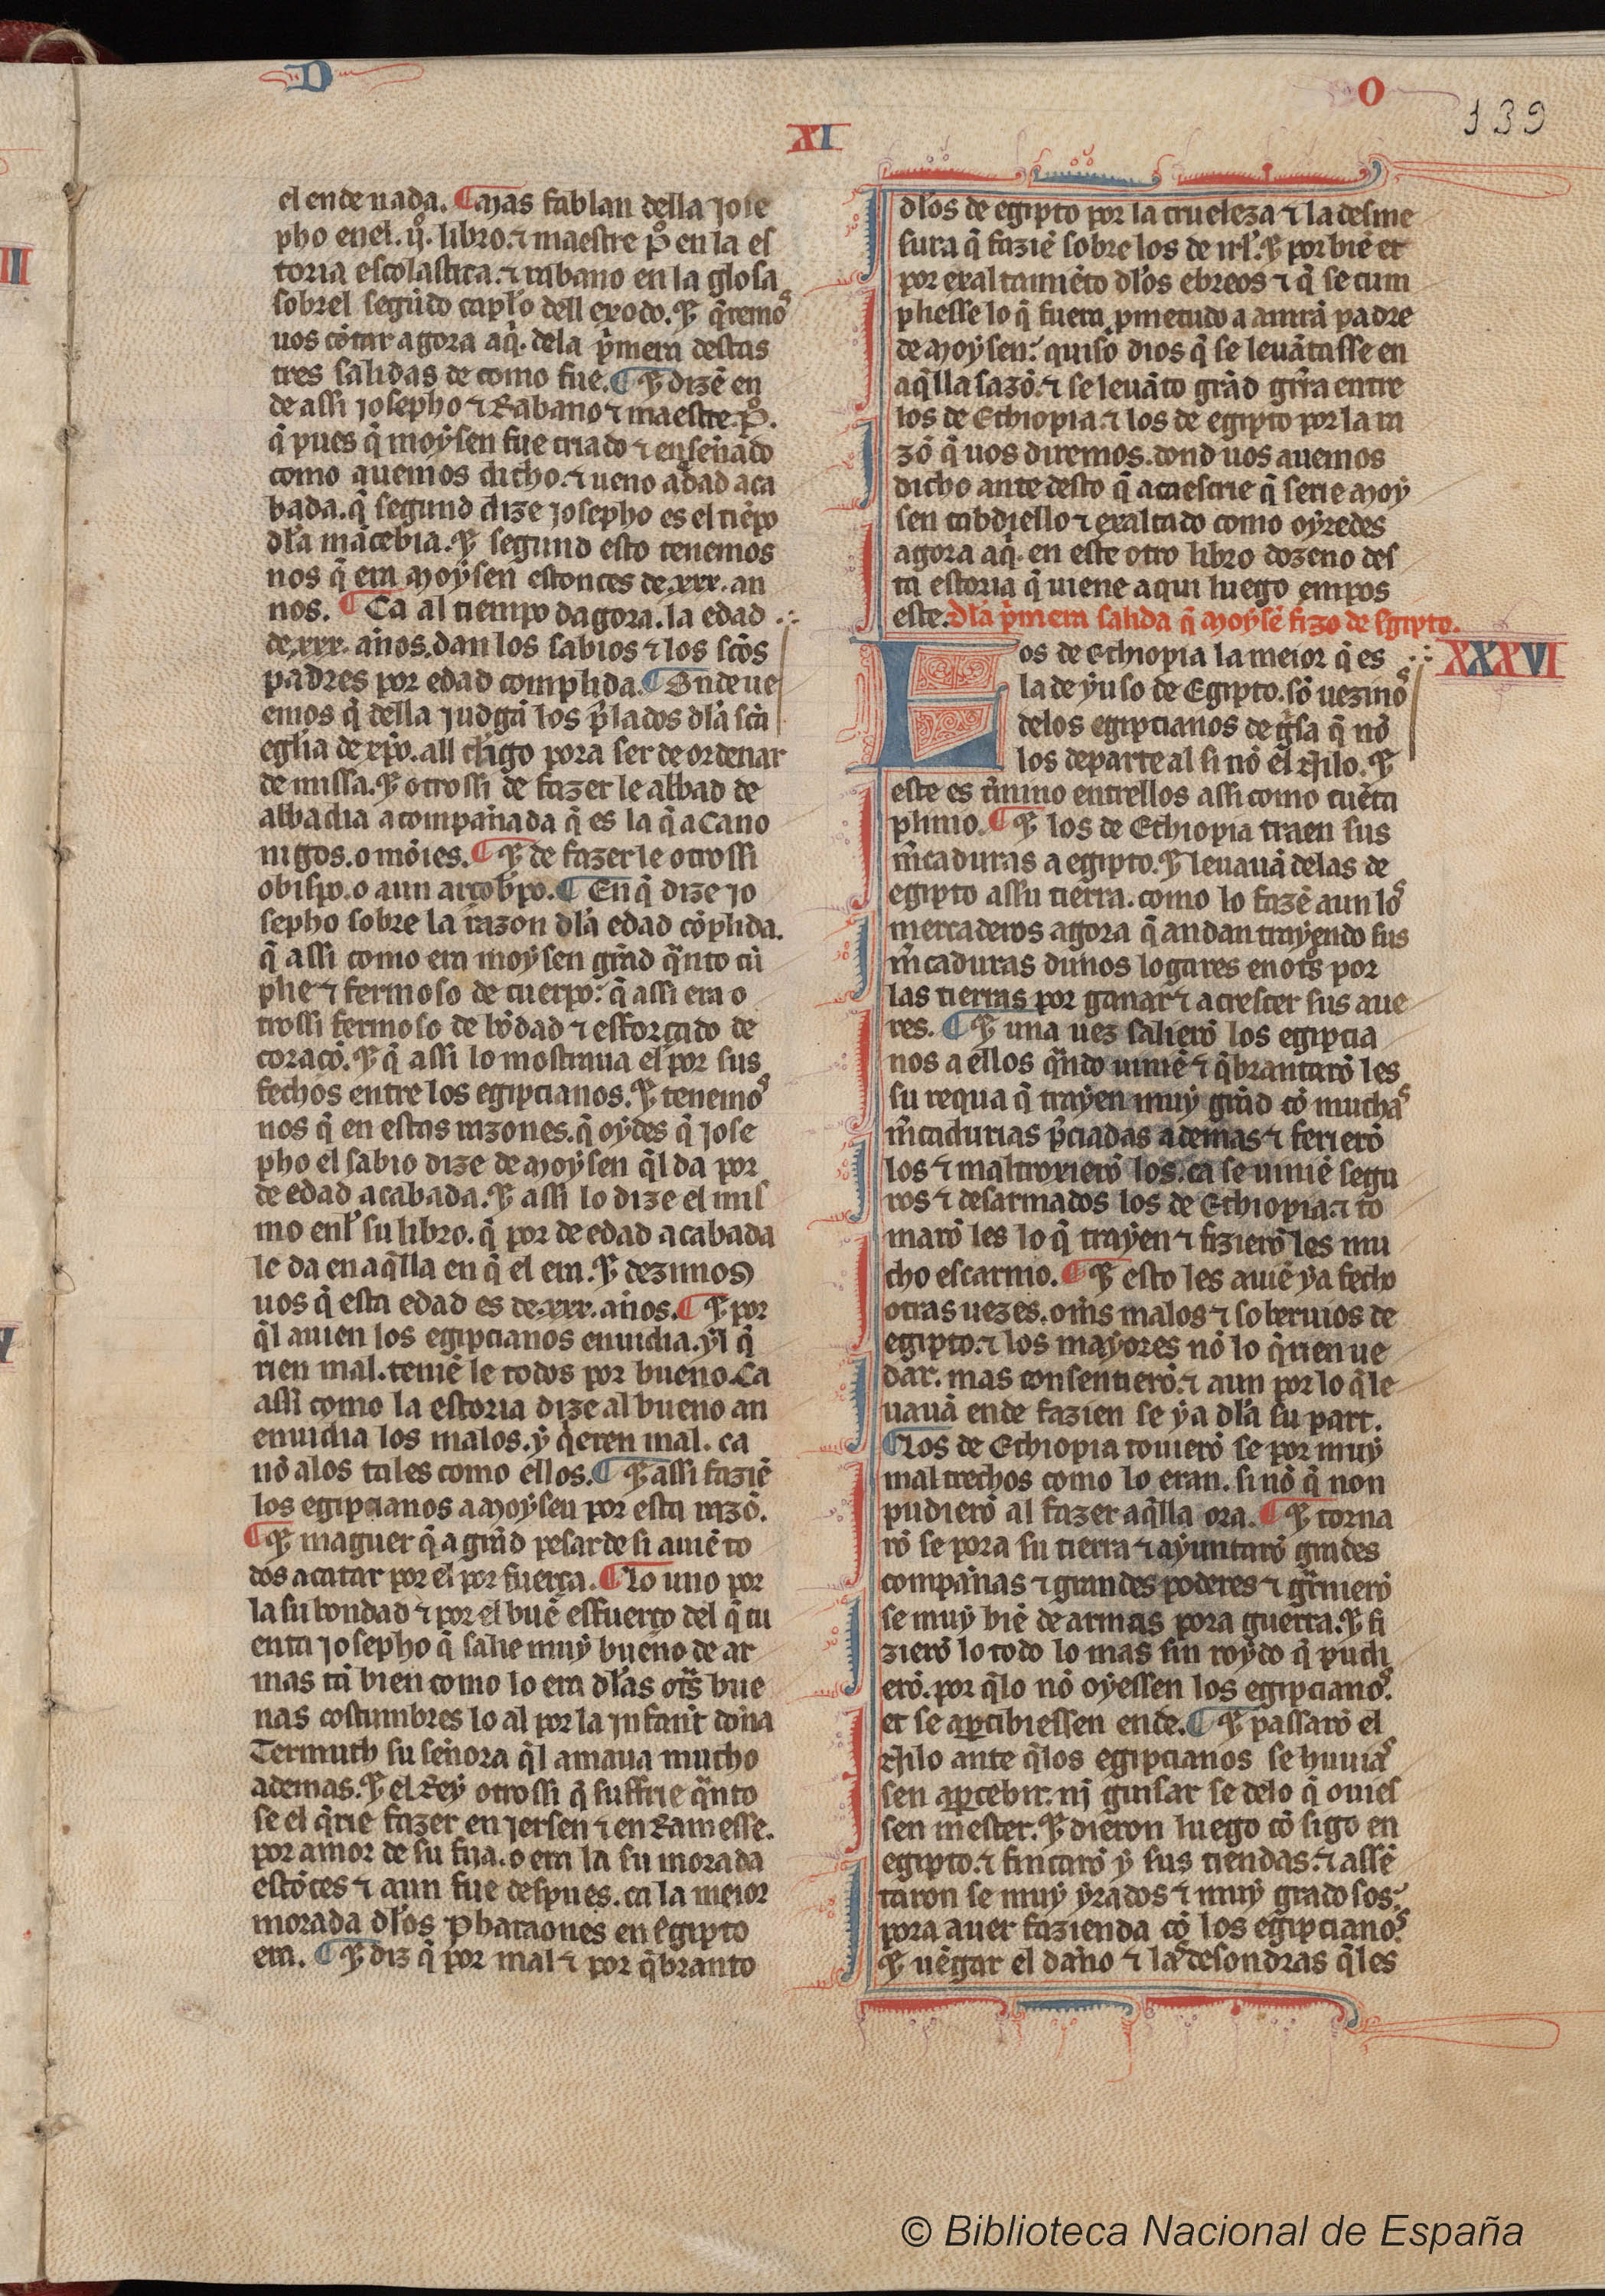 D
O
139
XI
el ende nada. ¶Mas fablan della Jose
pho enel .ij. libro. ⁊ maestre P̊ en la es
toria escolastica. ⁊ rabano en la glosa
sobrel segũdo capło dell exodo. E q̃remos
uos cõtar agora aq̃. dela p̃mera destas
tres salidas de como fue. ¶E dizẽ en
de assi Josepho ⁊ Rabano ⁊ maestre .P̊.
q̃ pues q̃ moysen fue criado ⁊ ensennado
como auemos dicho. ⁊ ueno a edad aca
bada. q̃ segund dize Josepho es el tiẽpo
dła mãcebia. E segund esto tenemos
nos q̃ era Moysen estonces de .xxx. an
nos. ¶Ca al tiempo dagora. la edad
de .xxx. annos. dan los sabios ⁊ los sc̃os
padres por edad complida. ¶Onde ue
emos q̃ della judgã los p̃lados dła sc̃a
egłia de xp̃o. all cl̃igo pora ser de ordenar
de missa. E otrossi de fazer le abbad de
abbadia acompannada q̃ es la q̃ a cano
nigos. o mõies. ¶E de fazer le otrossi
obispo. o aun arçob̃po. ¶En q̃ dize Jo
sepho sobre la razon dła edad cõplida.
q̃ assi como era moysen grãd q̃nto cũ
plie ⁊ fermoso de cuerpo: q̃ assi era o
trossi fermoso de bõdad ⁊ esforçado de
coraçõ. E q̃ assi lo mostraua el por sus
fechos entre los egipcianos. E tenemos
nos q̃ en estas razones. q̃ oydes q̃ Jose
pho el sabio dize de Moysen q̃l da por
de edad acabada. E assi lo dize el mis
mo enł su libro. q̃ por de edad acabada
le da en aq̃lla en q̃ el era. E dezimos
uos q̃ esta edad es de .xxx. annos. ¶E por
q̃l auien los egipcianos enuidia. yl q̃
rien mal. teniẽ le todos por bueno. Ca
assi como la estoria dize al bueno an
enuidia los malos. y q̃eren mal. ca
nõ alos tales como ellos. ¶E assi faziẽ
los egipcianos a Moysen por esta razõ.
¶E maguer q̃ a grãd pesar de si auiẽ to
dos a catar por el por fuerça. ¶Lo uno por
la su bondad ⁊ por el buẽ esfuerço del q̃ cu
enta Josepho q̃ salie muy bueno de ar
mas tã bien como lo era dłas ot̃s bue
nas costumbres lo al por la jnfant donna
Termuth su sennora q̃l amaua mucho
ademas. E el Rey otrossi q̃ suffrie q̃nto
se el q̃rie fazer en Jersen ⁊ en Ramesse.
por amor de su fija. o era la su morada
estõces ⁊ aun fue despues. ca la meior
morada dłos Pharaones en Egipto
era. ¶E diz q̃ por mal ⁊ por q̃branto
dłos de egipto por la crueleza ⁊ la desme
sura q̃ faziẽ sobre los de irł. E por biẽ et
por exaltamiẽto dłos ebreos ⁊ q̃ se cum
pliesse lo q̃ fuera p̃metudo a amrã padre
de Moysen: quiso dios q̃ se leuãtasse en
aq̃lla sazõ. ⁊ se leuãto grãd gr̃ra entre
los de Ethiopia. ⁊ los de egipto por la ra
zõ q̃ uos diremos. dond uos auemos
dicho ante desto q̃ acaescrie q̃ serie Moy
sen cabdiello ⁊ exaltado como oyredes
agora aq̃. en este otro libro dozeno des
ta estoria q̃ uiene aqui luego empos
este. Dła p̃mera salida q̃ Moysẽ fizo de Egipto.
XXXVI
Los de Ethiopia la meior q̃ es
la de yuso de Egipto. sõ uezinos
delos egipcianos de g̃sa q̃ nõ
los departe al si nõ el Nilo. E
este es t̃mino entrellos assi como cuẽta
plinio. ¶E los de Ethiopia traen sus
m̃caduras a egipto. E leuauã delas de
egipto assu tierra. como lo fazẽ aun los
mercaderos agora q̃ andan trayendo sus
m̃caduras dunos logares en ot̃s por
las tierras por ganar ⁊ acrescer sus aue
res. ¶E una uez salierõ los egipcia
nos a ellos q̃ndo uiniẽ ⁊ q̃brantarõ les
su requa q̃ trayen muy grãd cõ muchas
m̃cadurias p̃ciadas ademas ⁊ ferierõ
los ⁊ maltroxierõ los. ca se uiniẽ segu
ros ⁊ desarmados los de Ethiopia. ⁊ to
marõ les lo q̃ trayen ⁊ fizierõ les mu
cho escarnio. ¶E esto les auiẽ ya fecho
otras uezes. om̃s malos ⁊ soberuios de
egipto. ⁊ los mayores nõ lo q̃rien ue
dar. mas consentierõ. ⁊ aun por lo q̃ le
uauã ende fazien se ya dła su part.
¶Los de Ethiopia touierõ se por muy
maltrechos como lo eran. si nõ q̃ non
pudierõ al fazer aq̃lla ora. ¶E torna
rõ se pora su tierra ⁊ ayuntarõ grãdes
compannas ⁊ grandes poderes ⁊ g̃rnierõ
se muy biẽ de armas pora guerra. E fi
zierõ lo todo lo mas sin roydo q̃ pudi
erõ. por q̃lo nõ oyessen los egipcianos.
et se ap̃cibiessen ende. ¶E passarõ el
Nilo ante q̃los egipcianos se huuias
sen ap̃cebir: nj guisar se delo q̃ ouies
sen mester. E dieron luego cõsigo en
egipto. ⁊ fincarõ y sus tiendas. ⁊ assẽ
taron se muy yrados ⁊ muy grado sos:
pora auer fazienda cõ los egipcianos.
E uẽgar el danno ⁊ las desondras q̃les
© Biblioteca Nacional de España